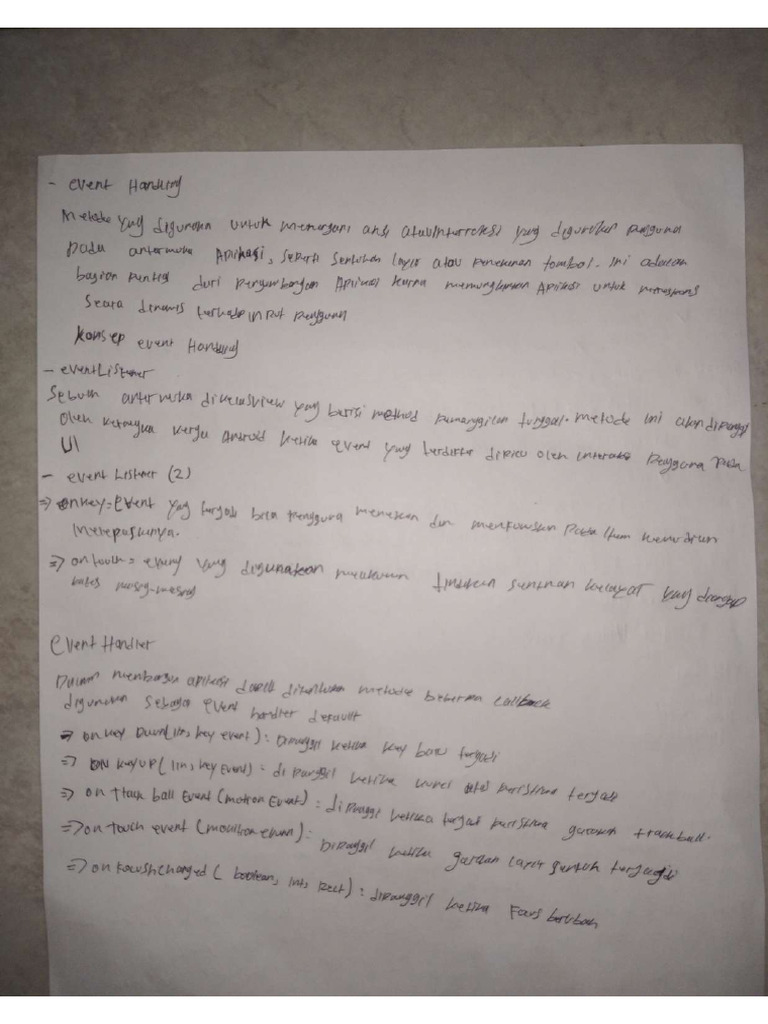 - event Handling
Metode yang digunakan untuk menangani aksi atau interaksi yang digunakan pengguna
pada antarmuka Aplikasi, seperti sentuhan layar atau penekanan tombol. ini adalah
bagian penting dari pengembangan Aplikasi karna memungkinkan Aplikasi untuk merespons
secara dinamis terhadap input pengguna
Konsep event Handling
- eventListener
Sebuah antarmuka di kelas view yang berisi method pemanggilan tunggal. metode ini akan dipanggil
oleh kerangka kerja Android ketika event yang terdaftar dipicu oleh interaksi Pengguna Pada
UI
- event Listener (2)
=> onkey = Event yang terjadi bila pengguna menekan dan memfokuskan Pada Item kemudian
melepaskannya.
=> ontouch = event yang digunakan melakukan tindakan sentuhan
Event Handler
Dalam membangun aplikasi dapat metode beberapa callback
digunakan sebagai event handler default
=> onkey Down(int, key event): Dipanggil ketika key baru terjadi
=> ON KeyUP (int, key Event): di panggil ketika kunci peristiwa terjadi
=> on track ball Event (Motion Event): dipanggil ketika terjadi peristiwa gerakan trackball.
=> on touch event (): Dipanggil ketika gerakan layar sentuh terjadi
=> on FocusChanged ( boolean, int, Rect): dipanggil ketika Focus berubah